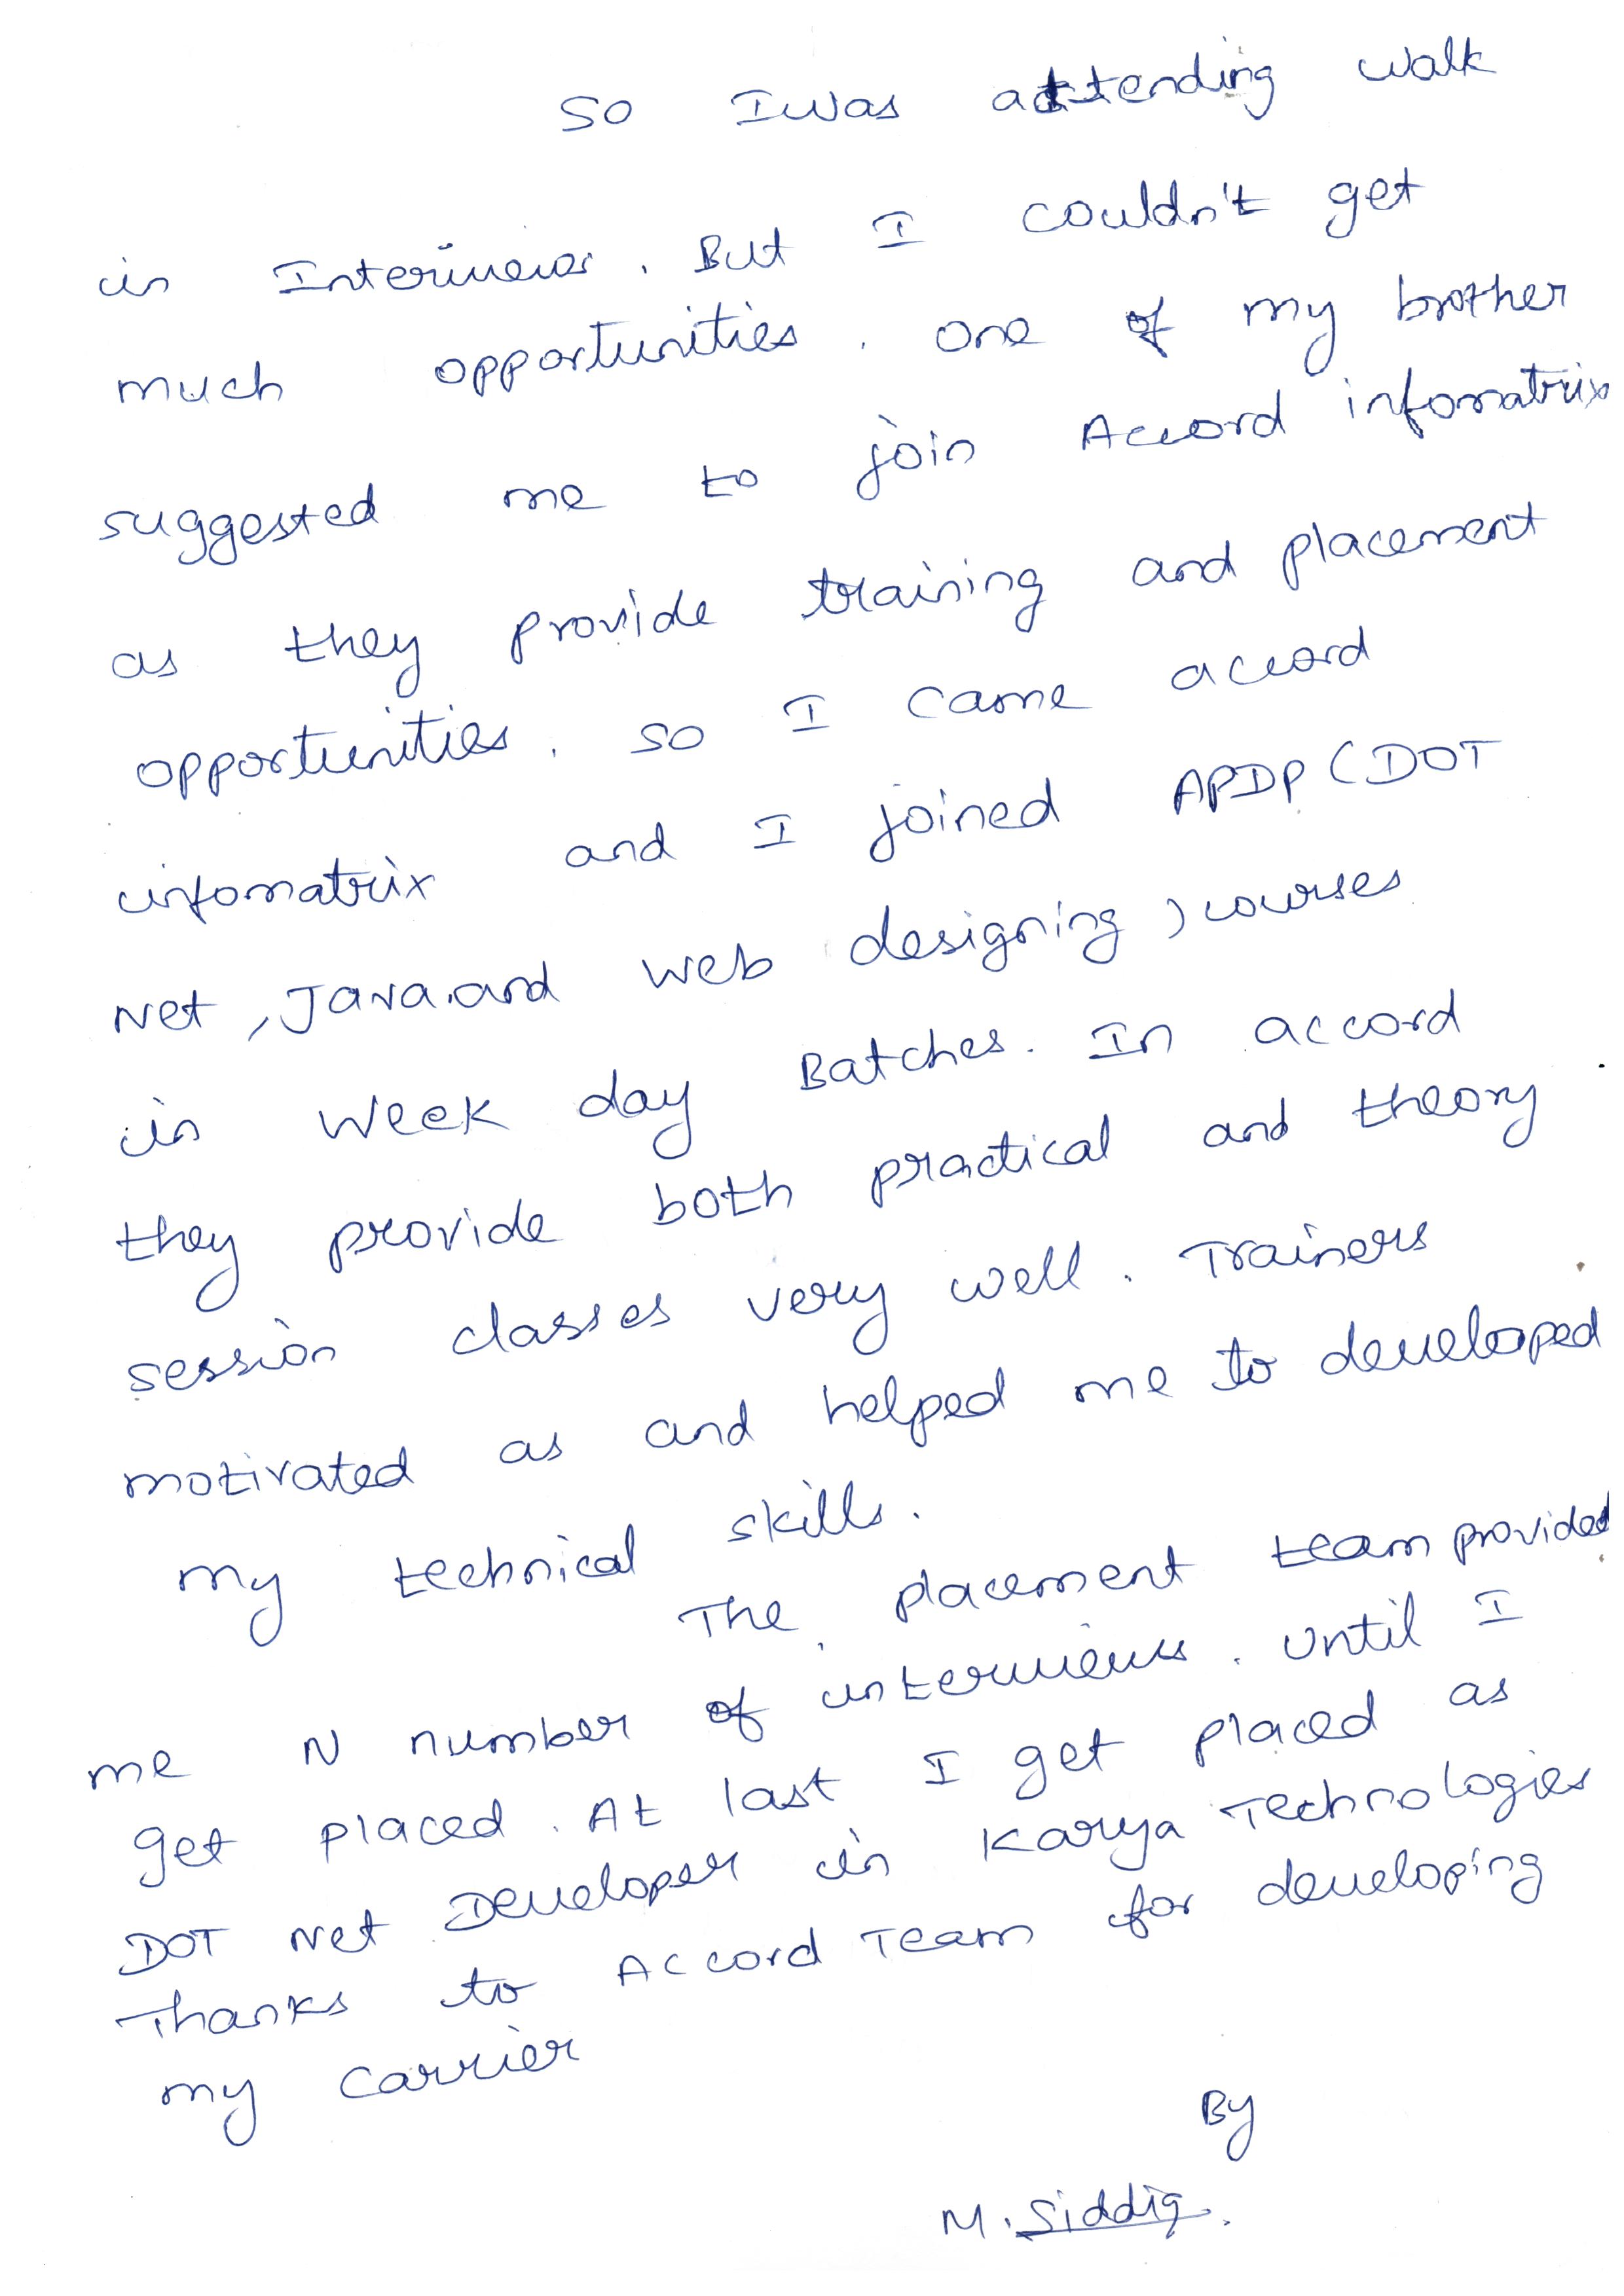 So I was attending walk
in Interviews. But I couldn't get
much opportunities. One of my brother
suggested me to join Accord infomatrix
as they provide training and placement
opportunities. so I came accord
infomatrix and I joined APDP (DOT
Net, Java and web designing) courses
in week day Batches. In accord
they provide both practical and theory
session classes very well. Trainers
motivated as and helped me to developed
my technical skills.
The placement team provided
me N number of interviews. Until I
get placed. At last I get placed as
DOT Net Developer in Karya Technologies
Thanks to Accord Team for developing
my carrier
By
M. Siddiq.